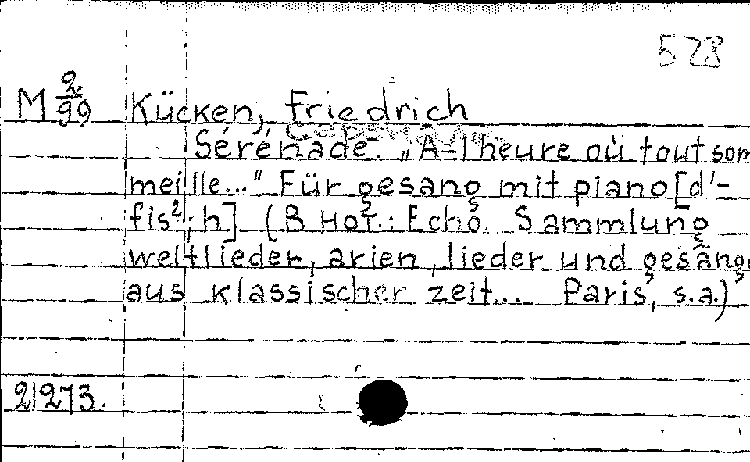 528
M 2/99 Kücken, Friedrich
Sérénade. „A-l'heure où tout som
meille..." Für gesang mit piano [d'-
fis²; h] (B Hof.: Echo. Sammlung
weltlieder, arien, lieder und gesäng
aus klassischer zeit... Paris, s.a.)
2|273.